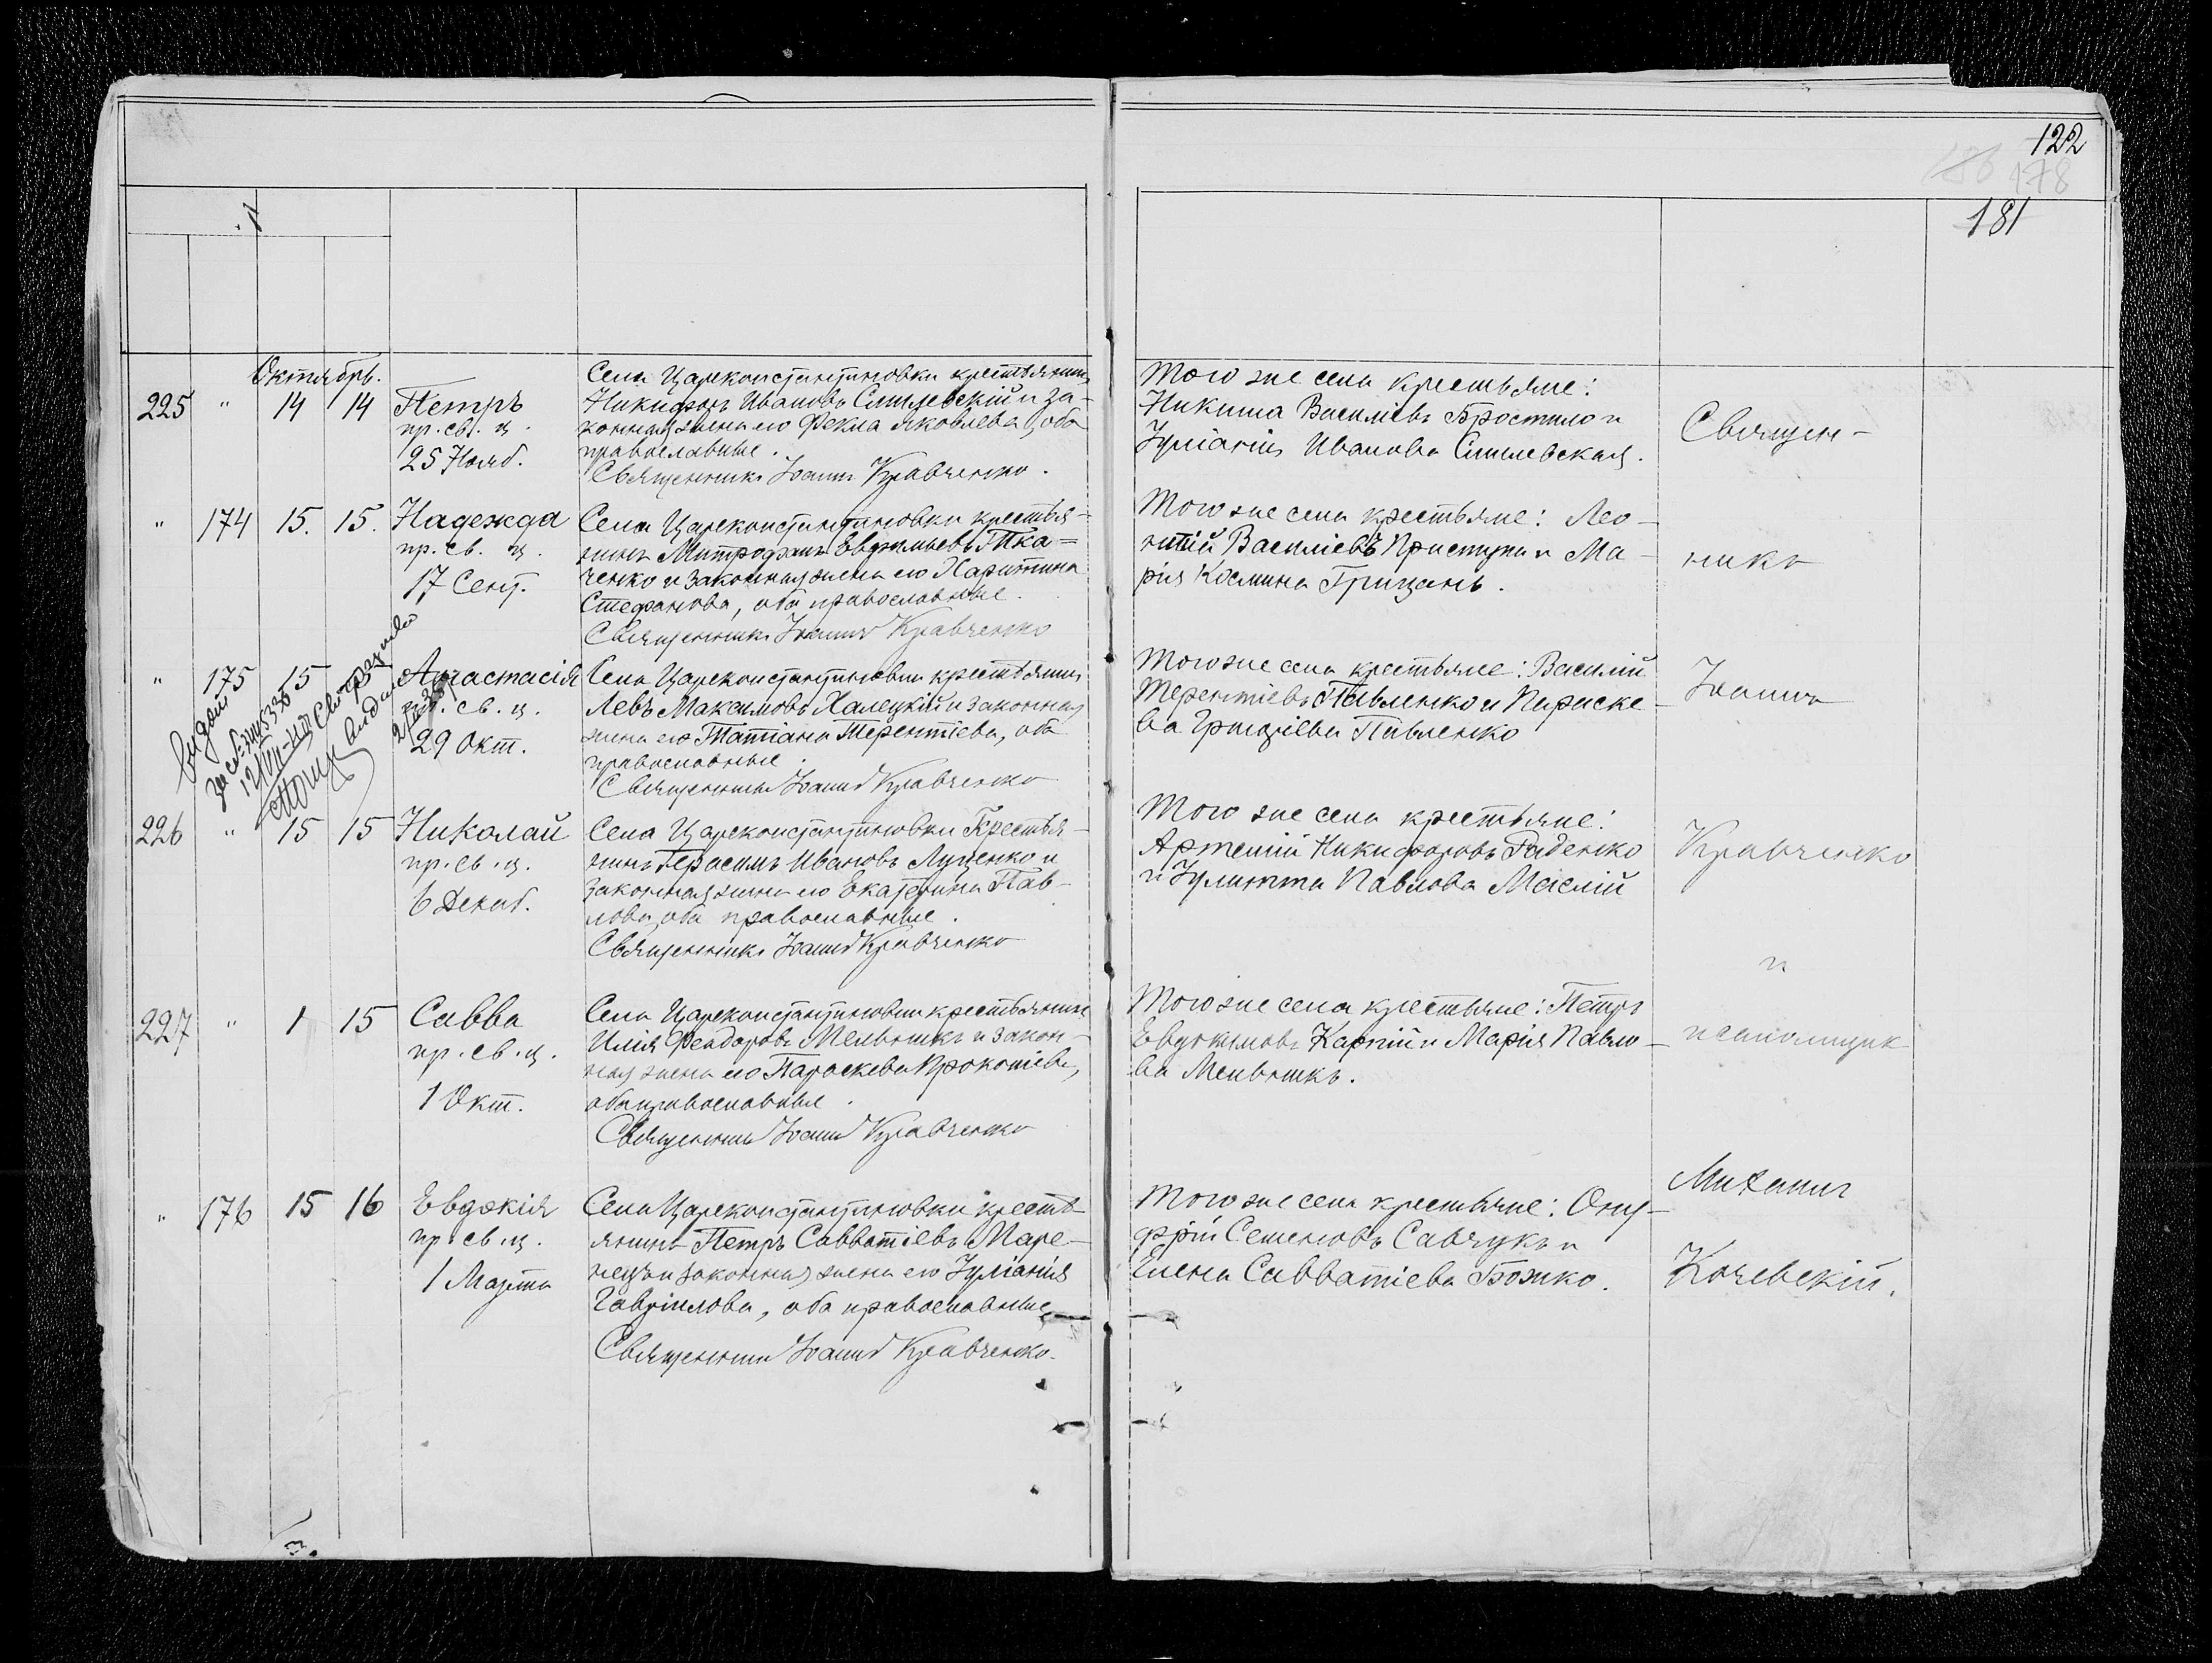 122
178
181
Октябрь.
225 " 14 14 Петръ
пр. св. ц.
25 Нояб.
Села Цареконстантиновки крестьянинъ
Никифоръ Ивановъ Смилевскій и за-
конная жена его Фекла Яковлева, оба
православные.
Священникъ Іоаннъ Кравченко.
Того же села крестьяне:
Никита Василіевъ Бростило и
Іуліанія Иванова Смилевская.
" 174 15. 15. Надежда
пр. св. ц.
17 Сент.
Села Цареконстантиновки крестья-
нинъ Митрофанъ Евфимьевъ Тка=
ченко и законная жена его Харитина
Стефанова, оба православные.
Священникъ Іоаннъ Кравченко
Того же села крестьяне: Лео-
нтій Василіевъ Приступа и Ма-
рія Космина Грицань.
" 175 15 15 Анастасія
пр. св. ц.
29 Окт.
Села Цареконстантиновки крестьянинъ
Левъ Максимовъ Халецкій и законная
жена его Татіана Терентіева, оба
православные.
Священникъ Іоаннъ Кравченко
Того же села крестьяне: Василій
Терентіевъ Павленко и Параске-
ва Григоріева Павленко
226 " 15 15 Николай
пр. св. ц.
6 Декаб.
Села Цареконстантиновки Крестья-
нинъ Герасимъ Ивановъ Луценко и
законная жена его Екатерина Пав-
лова, оба православные.
Священникъ Іоаннъ Кравченко
Того же села крестьяне:
Артемій Никифоровъ Раденко
и Іулитта Павлова Маслій
227 " 1 15 Савва
пр. св. ц.
1 Окт.
Села Цареконстантиновки крестьянинъ
Илія Феодоровъ Мельникъ и закон-
ная жена его Параскева Прокопіева,
оба православные.
Священникъ Іоаннъ Кравченко
Того же села крестьяне: Петръ
Евдокимовъ Карпій и Марія Павло-
ва Мельникъ.
" 176 15 16 Евдокія
пр. св. ц.
1 Марта
Села Цареконстантиновки кресть-
янинъ Петръ Савватіевъ Маре-
нецъ и законная жена его Іуліанія
Гавріилова, оба православные
Священникъ Іоаннъ Кравченко.
Того же села крестьяне: Ону-
фрій Семеновъ Савчукъ и
Елена Савватіева Божко.
Священ-
никъ
Іоаннъ
Кравченко
и
псаломщик
Михаилъ
Кочевскій.